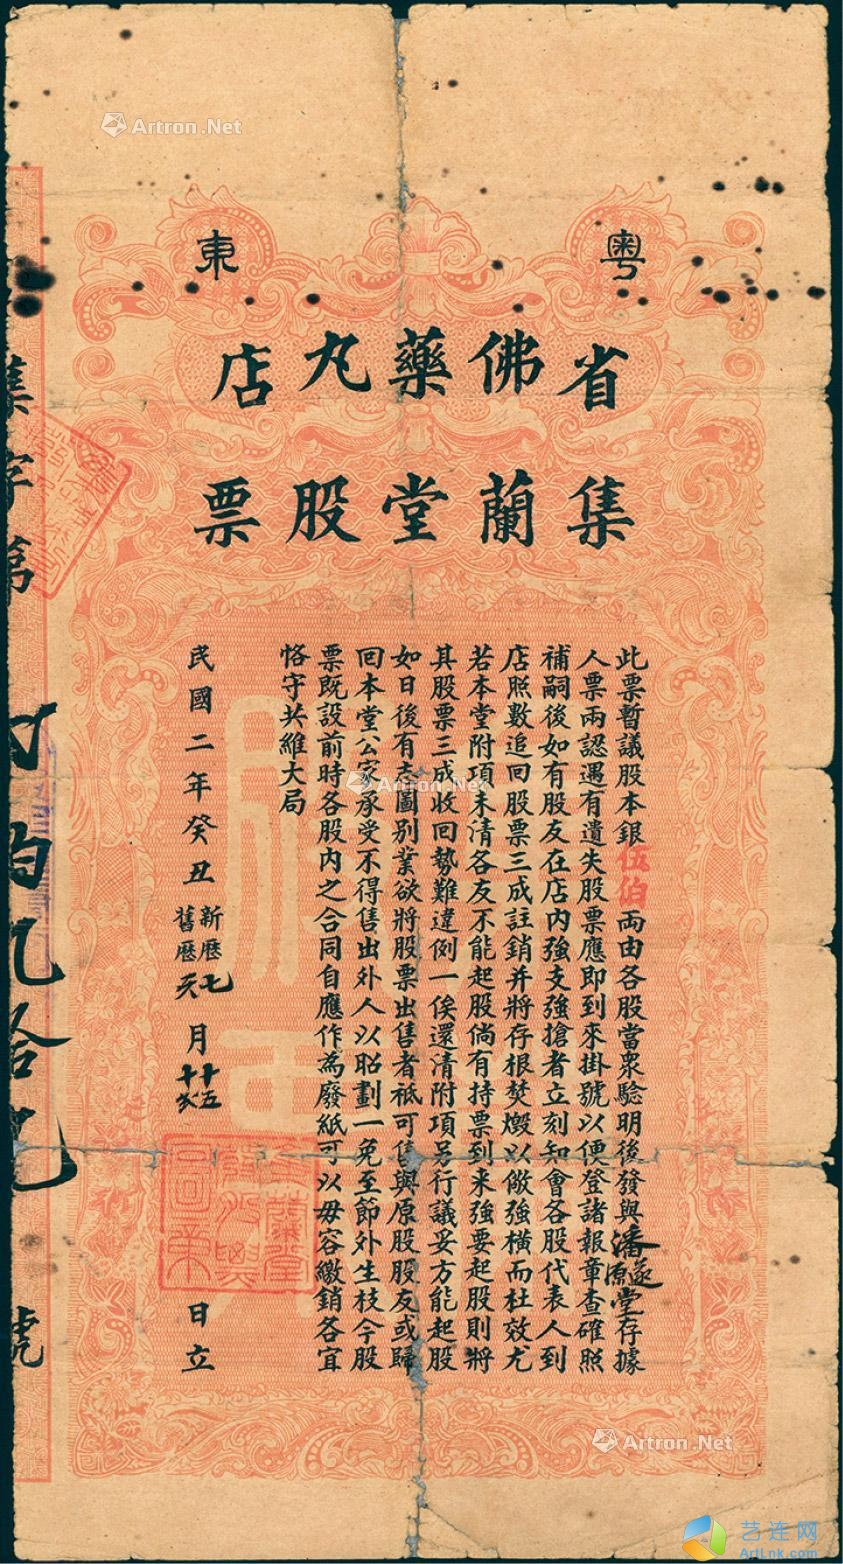 粵東
省佛藥丸店
集蘭堂股票
此票暫議股本銀伍佰兩由各股當衆驗明後發與潘遂原堂存據
人票兩認遇有遺失股票應即到來掛號以便登諸報章查確照
補嗣後如有股友在店內強支強搶者立刻知會各股代表人到
店照數追回股票三成註銷并將存根焚燬以儆強橫而杜效尤
若本堂附項未清各友不能起股倘有持票到來強要起股則將
其股票三成收回勢難違例一俟還清附項另行議妥方能起股
如日後有志圖別業欲將股票出售者祗可售與原股股友或歸
回本堂公家承受不得售出外人以昭劃一免至節外生枝今股
票既設前時各股內之合同自應作為廢紙可以毋容繳銷各宜
恪守共維大局
民國二年癸丑新曆七舊曆六月十五十二日立
集字第
號
Artron.Net
Artron.Net
Artron.Net
艺连网
ArtLnk.com